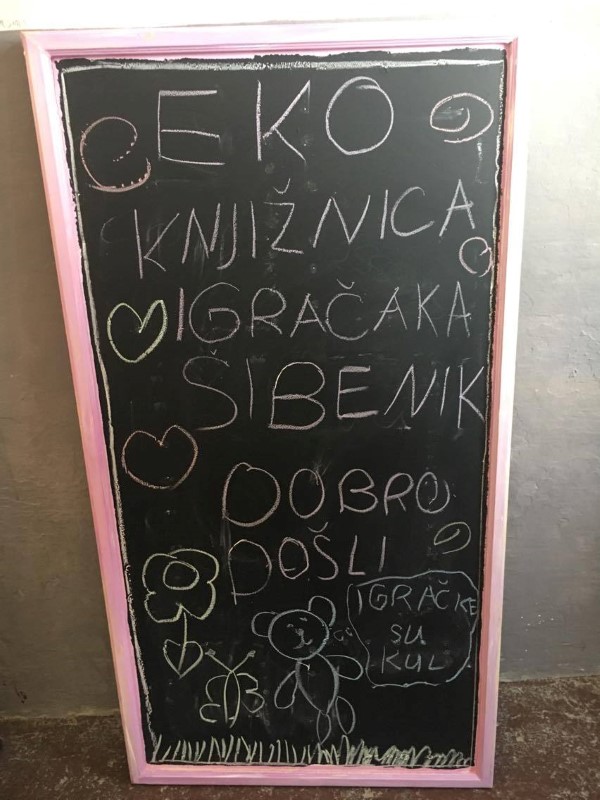 EKO
KNJIŽNICA
IGRAČAKA
ŠIBENIK
DOBRO
DOŠLI
IGRAČKE
SU
KUL